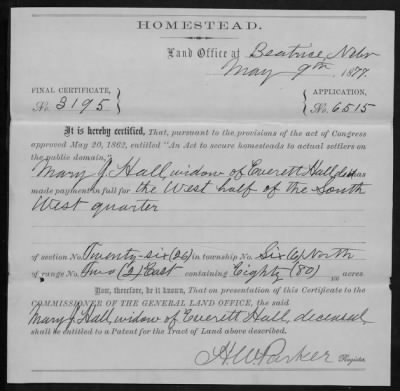 HOMESTEAD.
Land Office at Beatrice Nebr
May 9th, 1877.
FINAL CERTIFICATE,
No. 3195
APPLICATION,
No. 6515
It is hereby certified, That, pursuant to the provisions of the act of Congress
approved May 20, 1862, entitled "An Act to secure homesteads to actual settlers on
the public domain,"
Mary J. Hall, widow of Everett Hall, decd has
made payment in full for the West half of the South
West quarter
of section No. Twenty-six (26) in township No. Six (6) North
of range No. Two (2) East containing Eighty (80) acres
Now, therefore, be it known, That on presentation of this Certificate to the
COMMISSIONER OF THE GENERAL LAND OFFICE, the said
Mary J. Hall, widow of Everett Hall, deceased,
shall be entitled to a Patent for the Tract of Land above described.
H.W. Parker
Register.